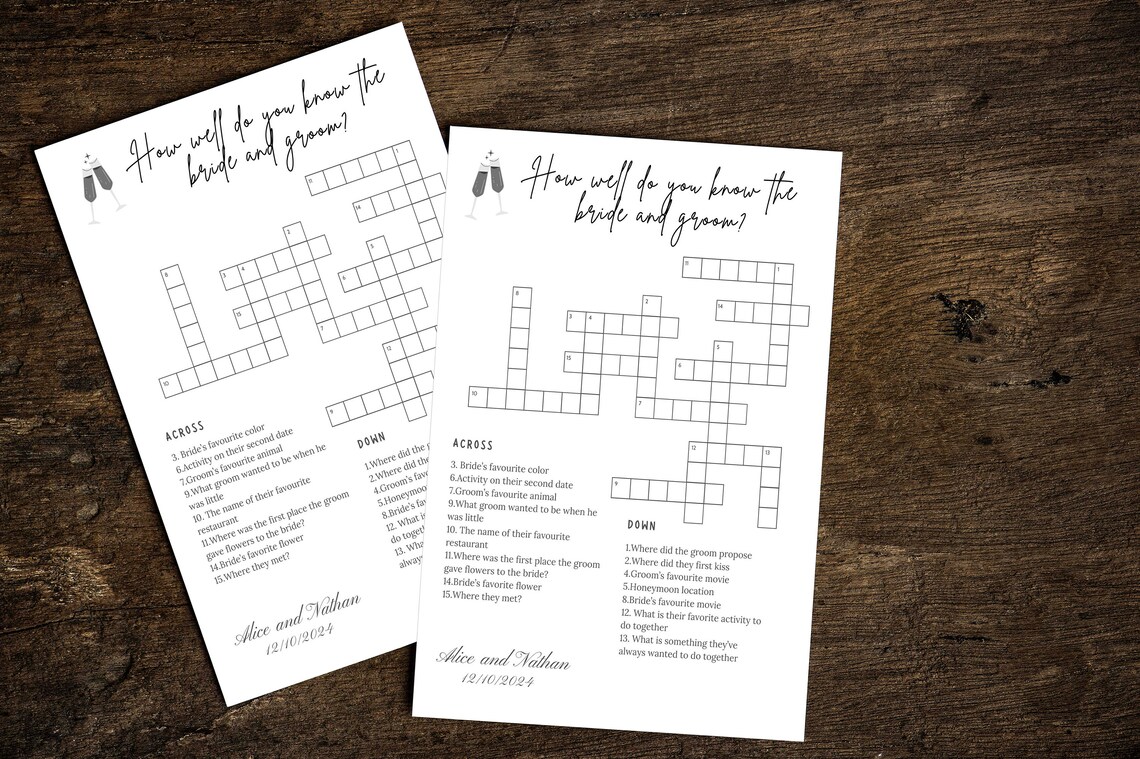 How well do you know the
bride and groom?
11 1
14
2
5
8
3 4
6
15
7
12
10
9
ACROSS
3. Bride's favourite color
6.Activity on their second date
7.Groom's favourite animal
9.What groom wanted to be when he
was little
10. The name of their favourite
restaurant
11.Where was the first place the groom
gave flowers to the bride?
14.Bride's favorite flower
15.Where they met?
DOWN
1.Where did the
2.Where did the
4.Groom's
5.Honeymoon
8.Bride's
12. What is
do
13.
Alice and Nathan
12/10/2024
How well do you know the
bride and groom?
11 1
8
2
14
3 4
5
15
6
10
7
12 13
9
ACROSS
3. Bride's favourite color
6.Activity on their second date
7.Groom's favourite animal
9.What groom wanted to be when he
was little
10. The name of their favourite
restaurant
11.Where was the first place the groom
gave flowers to the bride?
14.Bride's favorite flower
15.Where they met?
DOWN
1.Where did the groom propose
2.Where did they first kiss
4.Groom's favourite movie
5.Honeymoon location
8.Bride's favourite movie
12. What is their favorite activity to
do together
13. What is something they've
always wanted to do together
Alice and Nathan
12/10/2024